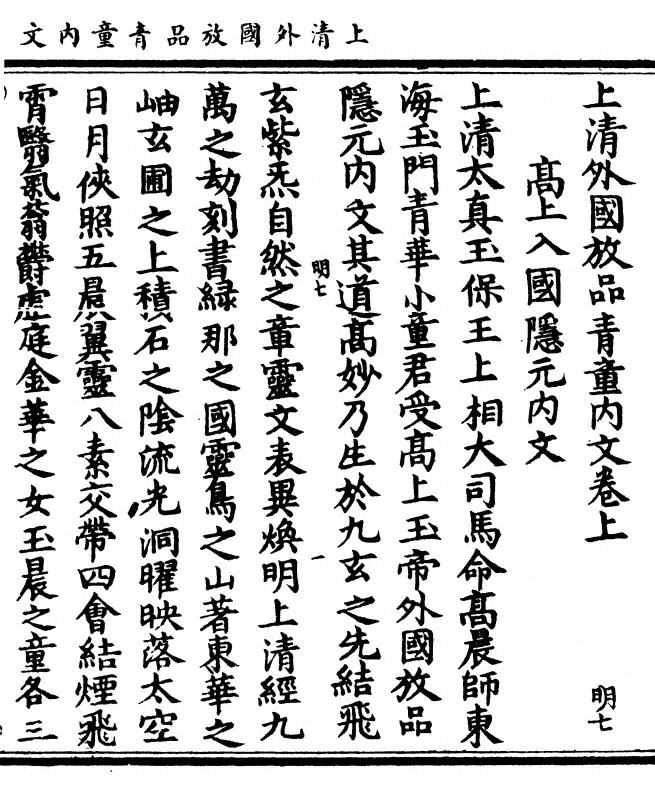 上清外國放品青童內文
上清外國放品青童內文卷上
明七
高上入國隱元內文
上清太真玉保王上相大司馬命髙晨師東
海玉門青華小童君受髙上玉帝外國放品
隱元內文其道髙妙乃生於九玄之先結飛
明七
一
玄紫炁自然之章靈文表異煥明上清經九
萬之劫刻書緑那之國靈鳥之山著東華之
岫玄圃之上積石之陰流光洞曜映落太空
日月俠照五晨翼靈八素交帶四會結煙飛
霄翳氣蓊欝虛庭金華之女玉晨之童各三